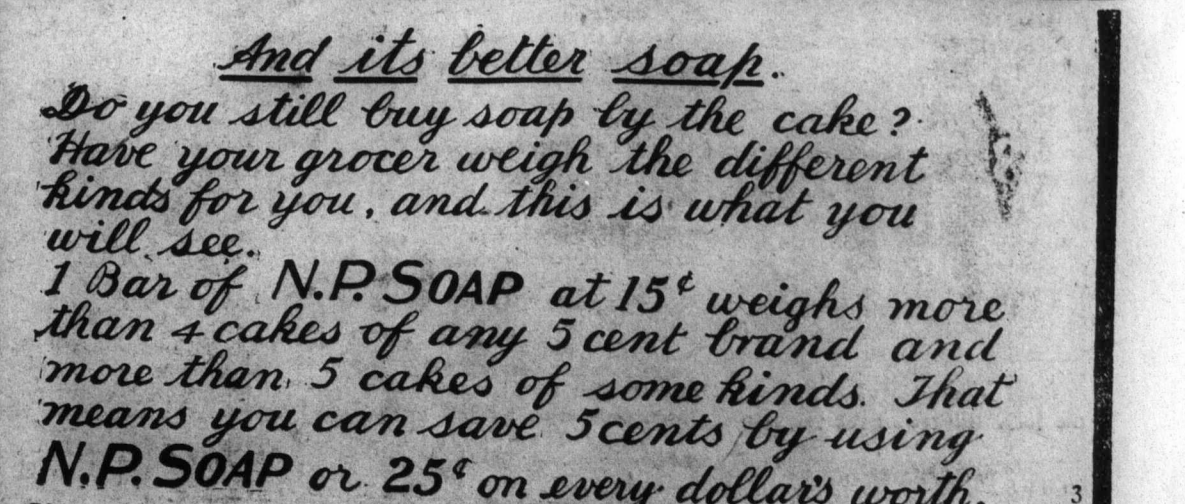 And its better soap.
Do you still buy soap by the cake?
Have your grocer weigh the different
kinds for you, and this is what you
will see.
1 Bar of N.P. SOAP at 15¢ weighs more
than 4 cakes of any 5 cent brand and
more than 5 cakes of some kinds. That
means you can save 5 cents by using
N.P. SOAP or 25¢ on every dollar's worth.
3